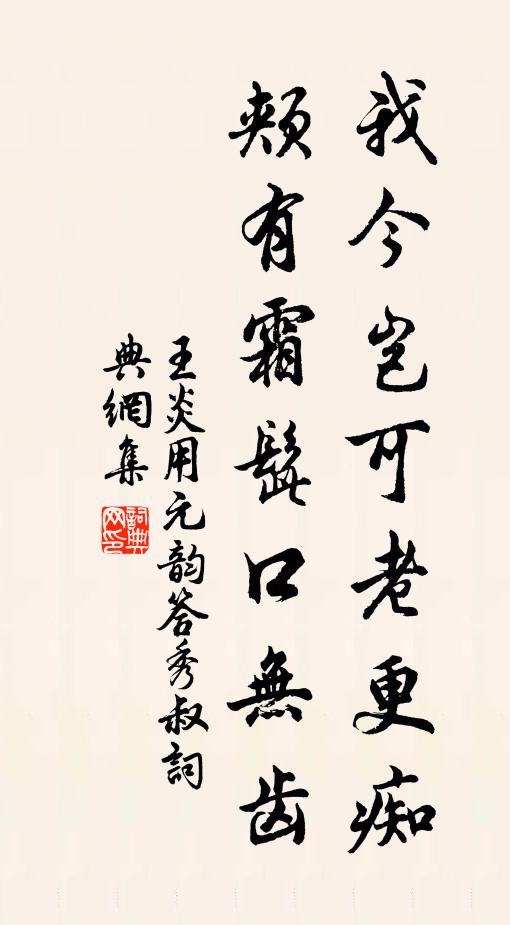 我今岂可老更痴
颊有霜髭口無齿
王炎用元韵答秀叔詞
典網集
詞典網印